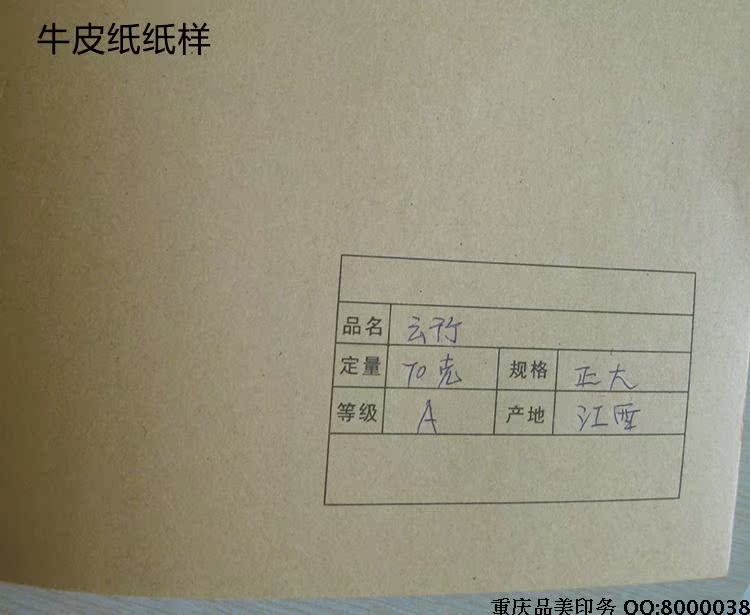 牛皮纸纸样
品名 云竹
定量 70克 规格 正大
等级 A 产地 江西
重庆品美印务 QQ:8000038